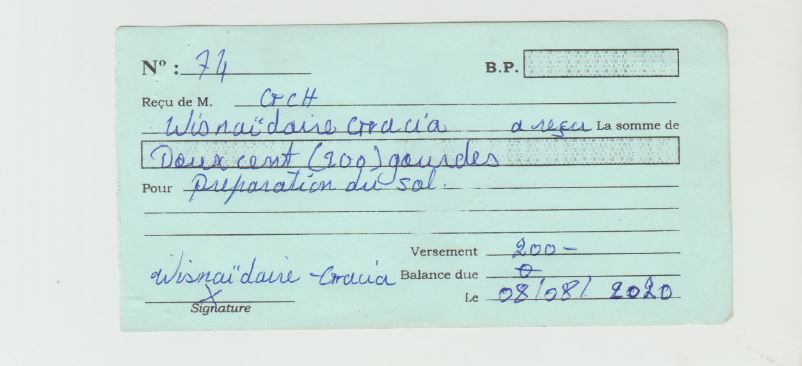 N° : 74 B.P.
Reçu de M. GCH
Wisnaïdaire Gracia a reçu La somme de
Deux cent (200) gourdes
Pour Préparation du sol.
Versement 200-
Wisnaïdaire Gracia Balance due 0
X Le 08/08/2020
Signature